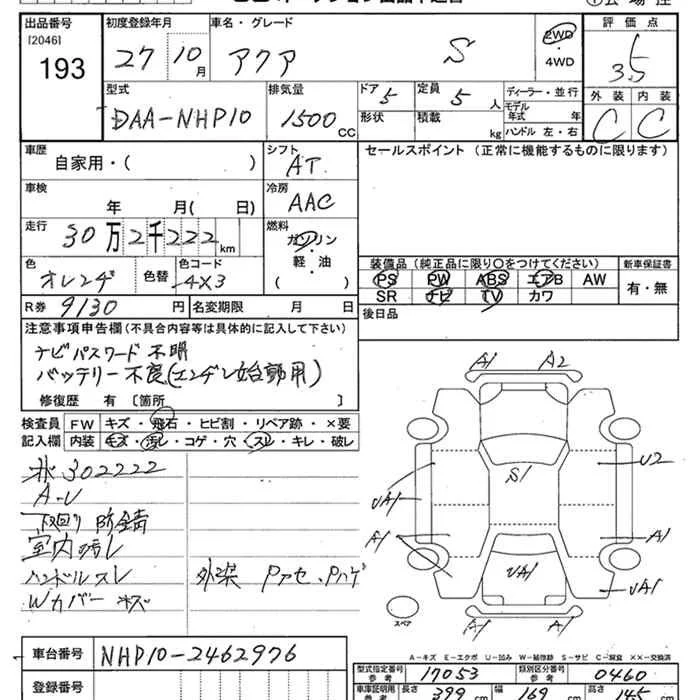 出品番号 初度登録年月 車名・グレード 評価点
[2046] 193 27 10月 アクア S 2WD ・ 4WD 3.5
外装 内装
C C
型式 排気量 ドア 5 定員 5人 ディーラー・並行
DAA-NHP10 1500cc 形状 積載 kg モデル年式 年
ハンドル 左・右
車歴 シフト セールスポイント (正常に機能するものに限ります)
自家用・( ) AT
車検 冷房
年 月( 日) AAC
走行 燃料
30万2千222km ガソリン
・
軽・油
( )
色 色替 色コード
オレンヂ 4X3
装備品 (純正品に限り○をつけてください) 新車保証書
PS PW ABS エアB AW 有・無
SR ナビ TV カワ
R券 9130円 名変期限 月 日 後日品
注意事項申告欄(不具合内容等は具体的に記入して下さい)
ナビパスワード不明
バッテリー不良(エンヂン始動用)
修復歴 有 〔箇所 〕
検査員 FW キズ・飛石・ヒビ割・リペア跡・×要
記入欄 内装 キズ・汚レ・コゲ・穴・スレ・キレ・破レ
302222
A-U
下回り防錆
室内汚レ
ハンドルスレ 外装 Pアセ、Pハゲ
Wカバーキズ
A1 A2
S1 U2
UA1
A1 A1
UA1 UA1
A1 A1
スペア
A-キズ E-エクボ U-凹み W-補修跡 S-サビ C-腐食 ××-交換済
車台番号 NHP10-2462976
型式指定番号 参考 17053 類別区分番号 参考 0460
登録番号
車庫証明用 参考 長さ 399cm 幅 169cm 高さ 145cm